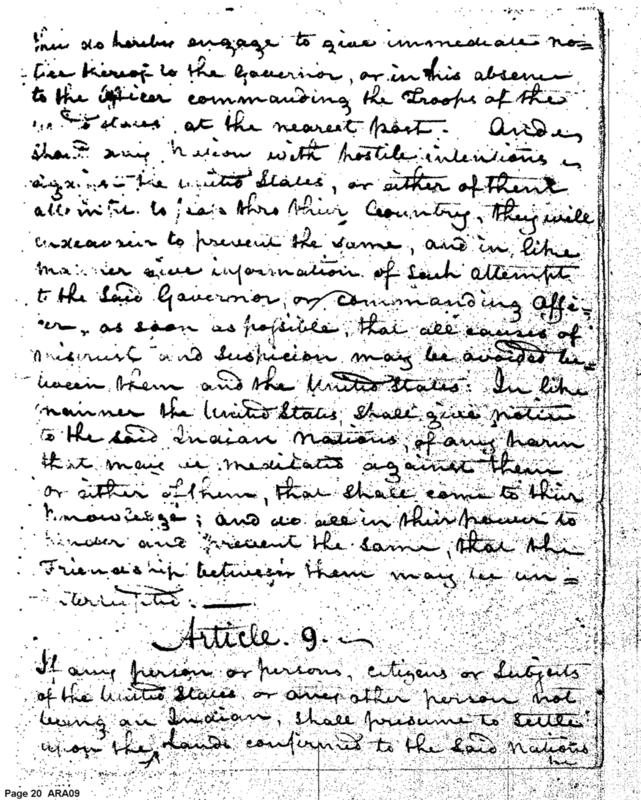 do hereby engage to give immediate no=
tice thereof to the Governor, or in his absence
to the officer commanding the Troops of the
States, at the nearest post. And
should any Nation with hostile intentions
against the United States, or either of them
attempt to pass thro their Country, they will
endeavour to prevent the same, and in like
manner give information of such attempt
to the said Governor, or commanding Offi=
er, as soon as possible, that all causes of
mistrust and suspicion may be avoided be=
tween them and the United States: In like
manner the United States shall give notice
to the said Indian Nations, of any harm
that may be meditated against them
or either of them, that shall come to their
knowledge; and do all in their power to
hinder and prevent the same, that the
Friendship between them may be un=
interrupted.
Article. 9.
If any person or persons, citizens or Subjects
of the United States, or any other person not
being an Indian, shall presume to settle
upon the Lands confirmed to the said Nations
Page 20 ARA09